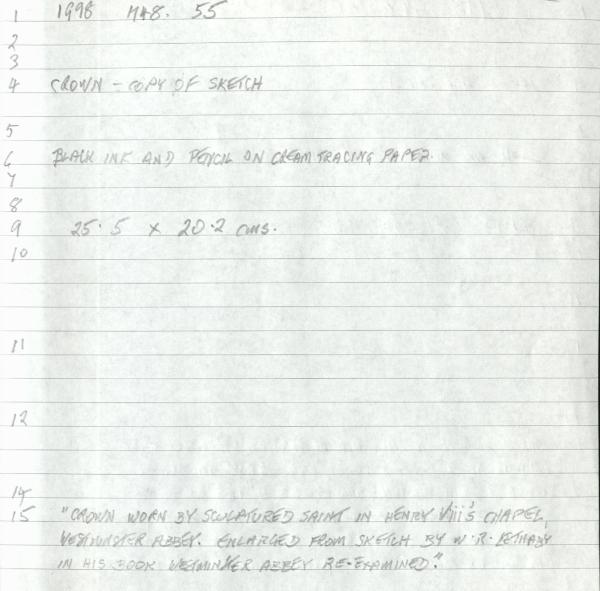 1 1998 M48. 55
2
3
4 CROWN - COPY OF SKETCH
5
6 BLACK INK AND PENCIL ON CREAM TRACING PAPER.
7
8
9 25.5 x 20.2 cms.
10
11
12
14
15 "CROWN WORN BY SCULPTURED SAINT IN HENRY Viii's CHAPEL,
WESTMINSTER ABBEY. ENLARGED FROM SKETCH BY W.R. LETHABY
IN HIS BOOK WESTMINSTER ABBEY RE-EXAMINED."